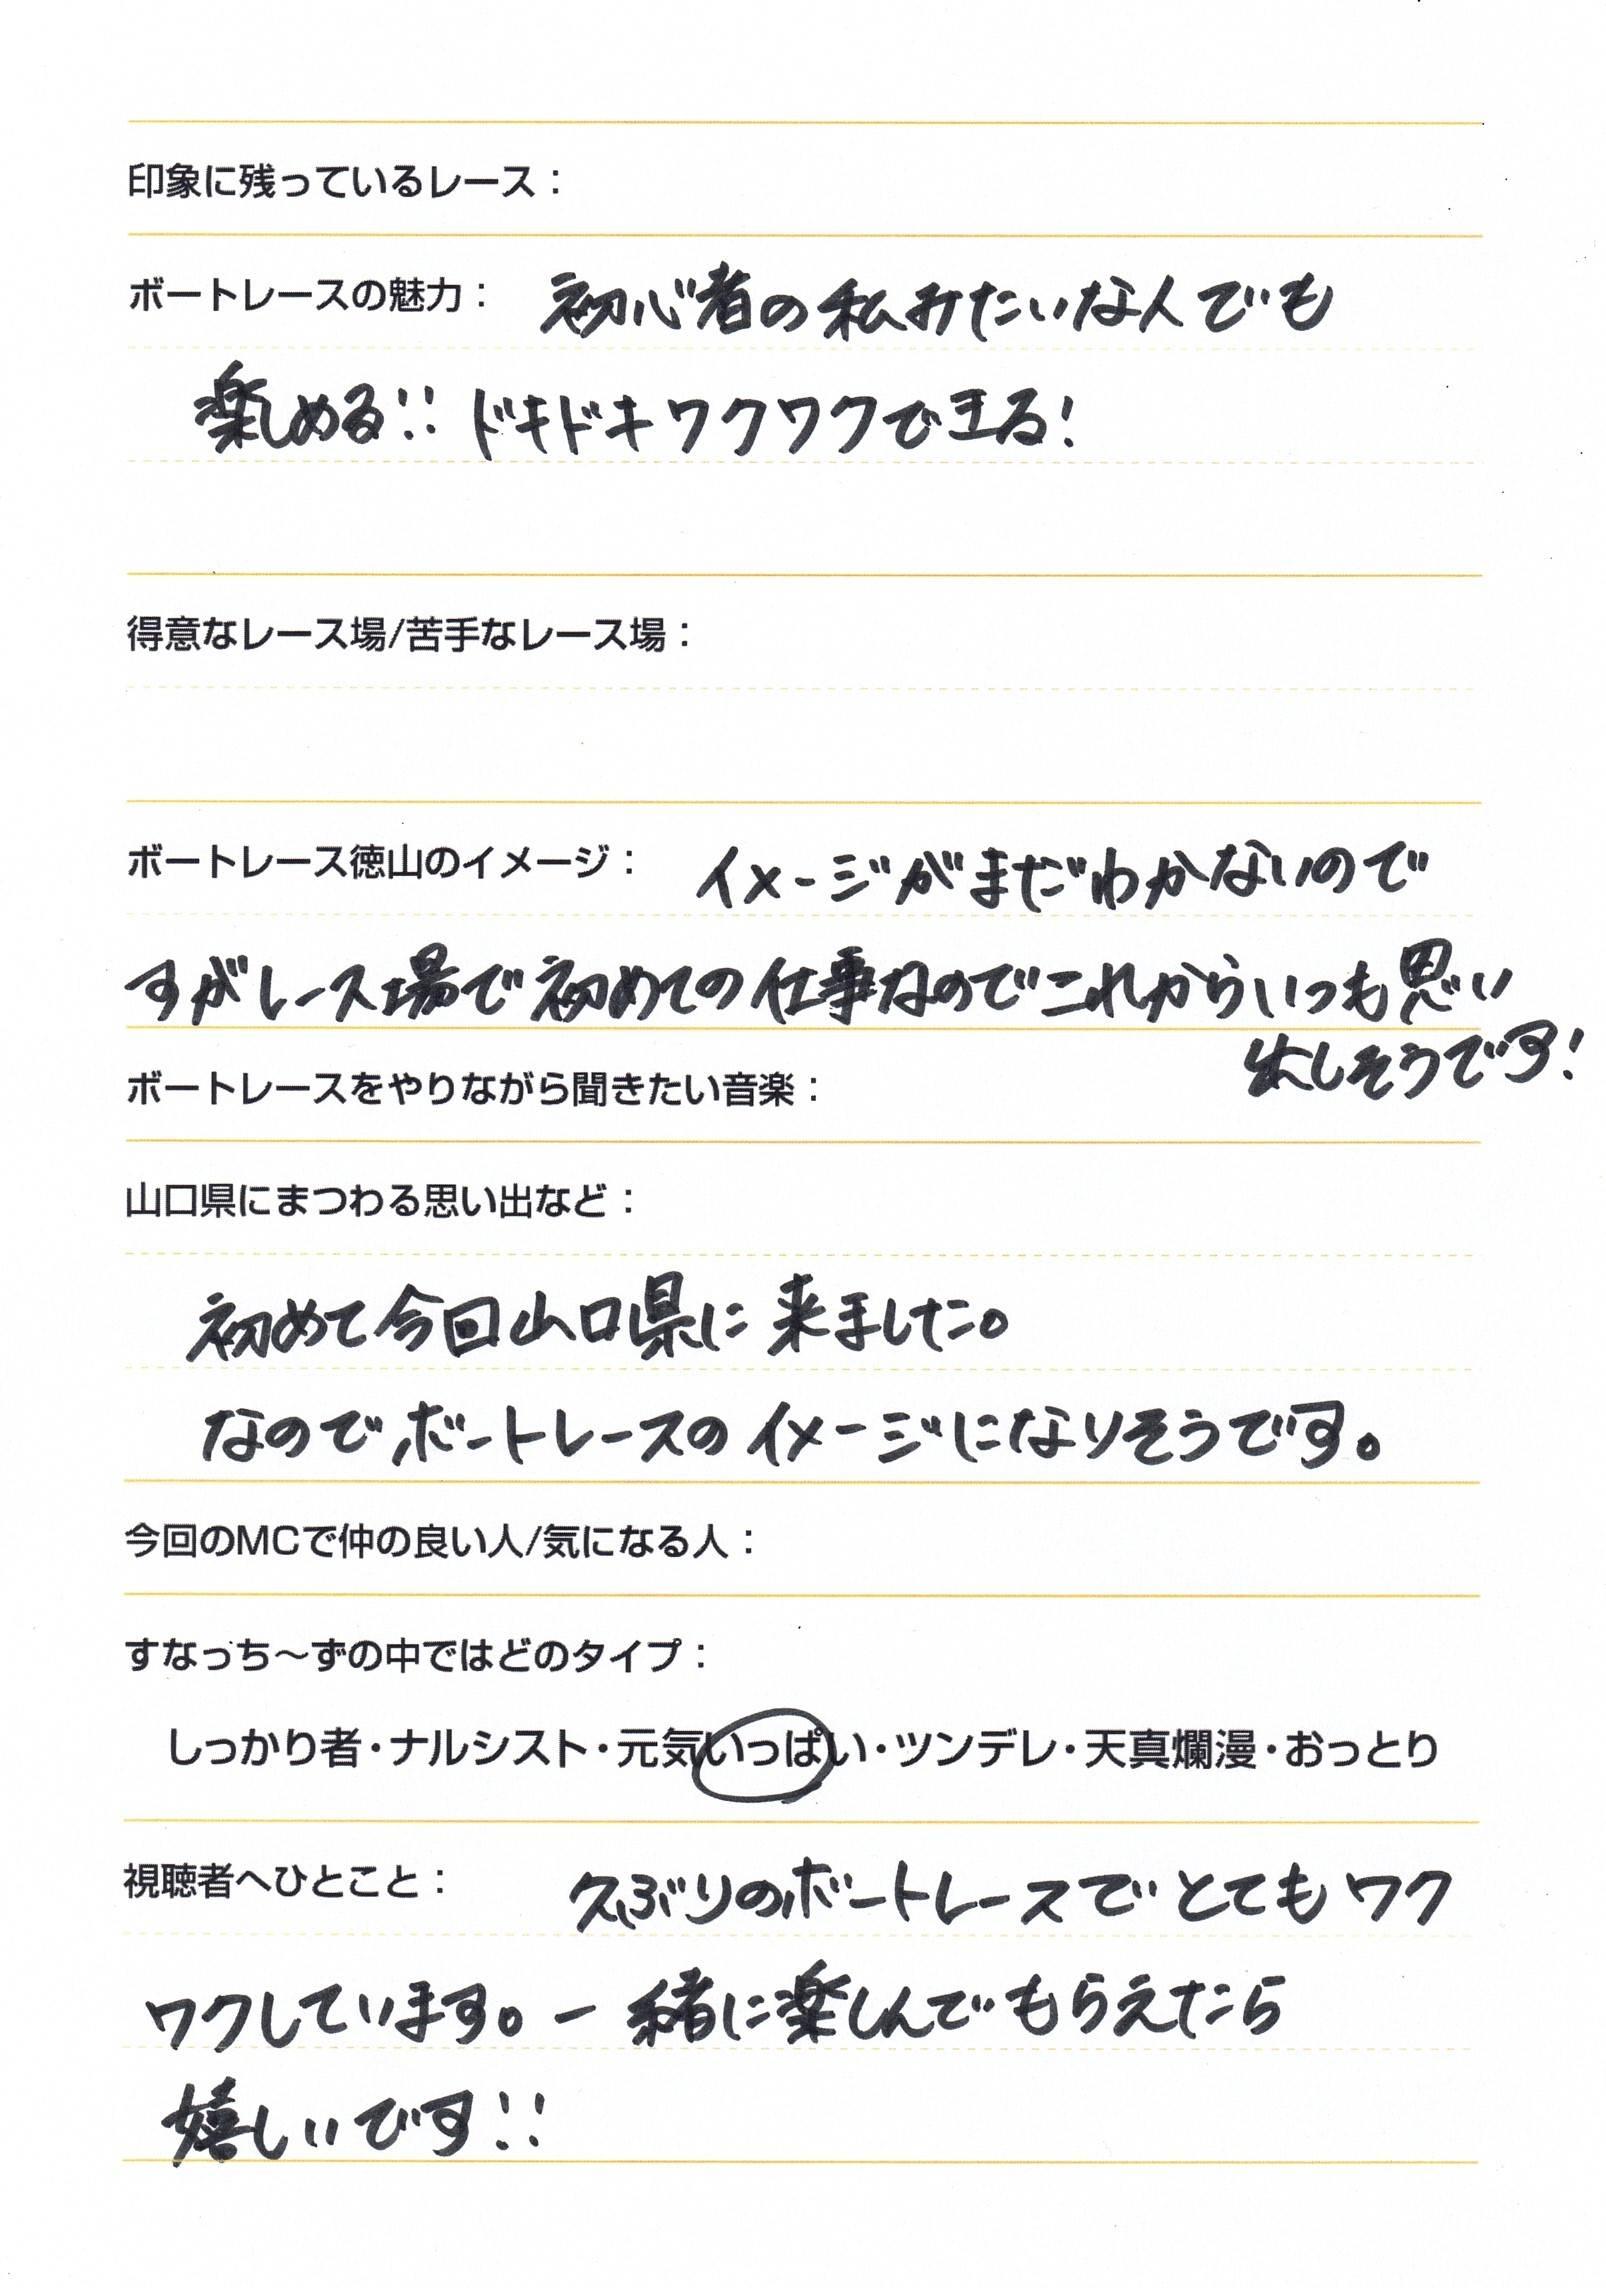 印象に残っているレース：
ボートレースの魅力： 初心者の私みたいな人でも
楽しめる!! ドキドキワクワクできる!
得意なレース場/苦手なレース場：
ボートレース徳山のイメージ： イメージがまだわかないので
すがレース場で初めての仕事なのでこれからいつも思い
出しそうです!
ボートレースをやりながら聞きたい音楽：
山口県にまつわる思い出など：
初めて今回山口県に来ました。
なのでボートレースのイメージになりそうです。
今回のMCで仲の良い人/気になる人：
すなっち〜ずの中ではどのタイプ：
しっかり者・ナルシスト・元気いっぱい・ツンデレ・天真爛漫・おっとり
視聴者へひとこと： 久ぶりのボートレースでとてもワク
ワクしています。一緒に楽しんでもらえたら
嬉しいです!!